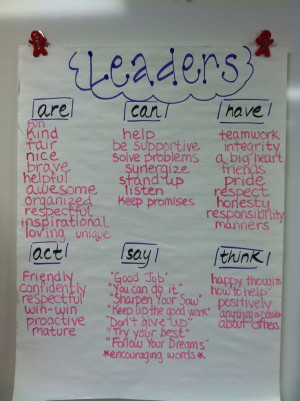 Leaders
are
fun
kind
fair
nice
brave
helpful
awesome
organized
respectful
inspirational
loving unique
can
help
be supportive
solve problems
synergize
stand up
listen
keep promises
have
teamwork
integrity
a big heart
friends
pride
respect
honesty
responsibility
manners
act
Friendly
confidently
respectful
win-win
proactive
mature
say
"Good Job"
"You can do it"
"Sharpen Your Saw"
"Keep up the good work"
"Don't give up"
"Try your best"
"Follow Your Dreams"
*encouraging words*
think
happy thoughts
how to help
positively
anything is possible
about others